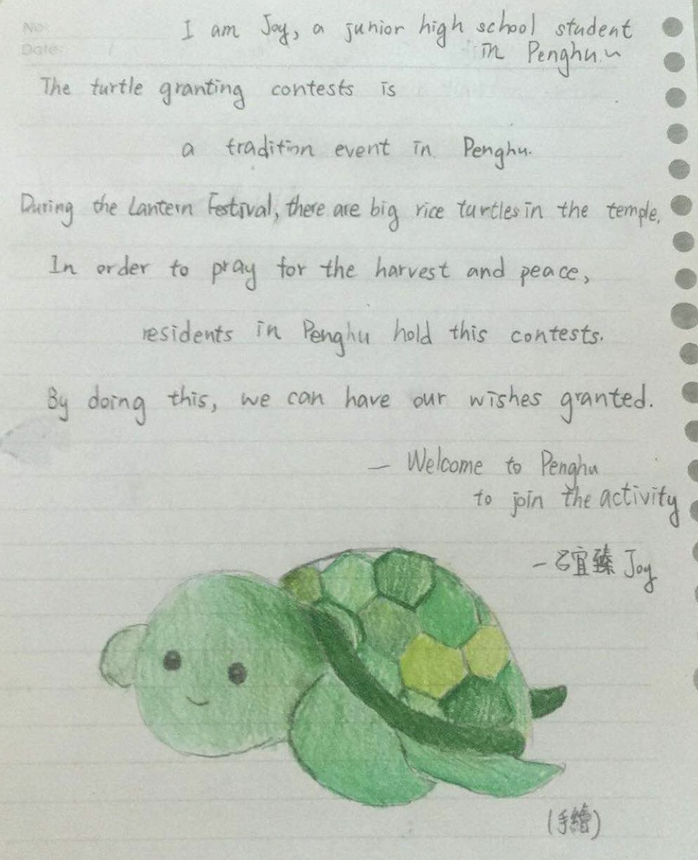 No:
Date: /
I am Joy, a junior high school student
in Penghu~
The turtle granting contests is
a tradition event in Penghu.
During the Lantern Festival, there are big rice turtles in the temple.
In order to pray for the harvest and peace,
residents in Penghu hold this contests.
By doing this, we can have our wishes granted.
— Welcome to Penghu
to join the activity
—呂宜臻 Joy
(手繪)